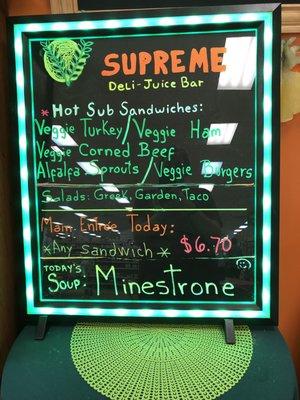 SUPREME
Deli-Juice Bar
* Hot Sub Sandwiches:
Veggie Turkey/Veggie Ham
Veggie Corned Beef
Alfalfa Sprouts/Veggie Burgers
Salads: Greek, Garden, Taco
Main Entrée Today:
*Any Sandwich* $6.70
TODAY'S
Soup: Minestrone